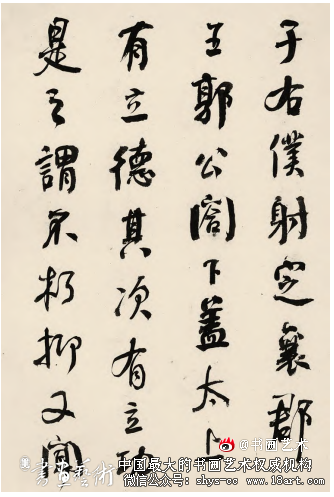 于右僕射定襄郡
王郭公閤下蓋太上
有立德其次有立功
是之謂不朽抑又聞
@书画艺术
書畫藝術 中国最大的书画艺术权威机构
微信公众号：shys-cc www.18art.com